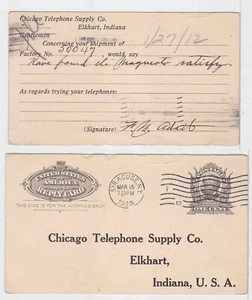 Chicago Telephone Supply Co.
Elkhart, Indiana
Gentlemen
Concerning your shipment of
1/27/12
Factory No. 30047, would say
Have found the Magneto satisfy.
As regards trying your telephones:
(Signature)
UNITED STATES
OF
AMERICA
REPLY CARD
THIS SIDE IS FOR THE ADDRESS ONLY.
SYRACUSE, N.Y.
MAR 16
7 30 PM
ONE CENT
Chicago Telephone Supply Co.
Elkhart,
Indiana, U. S. A.